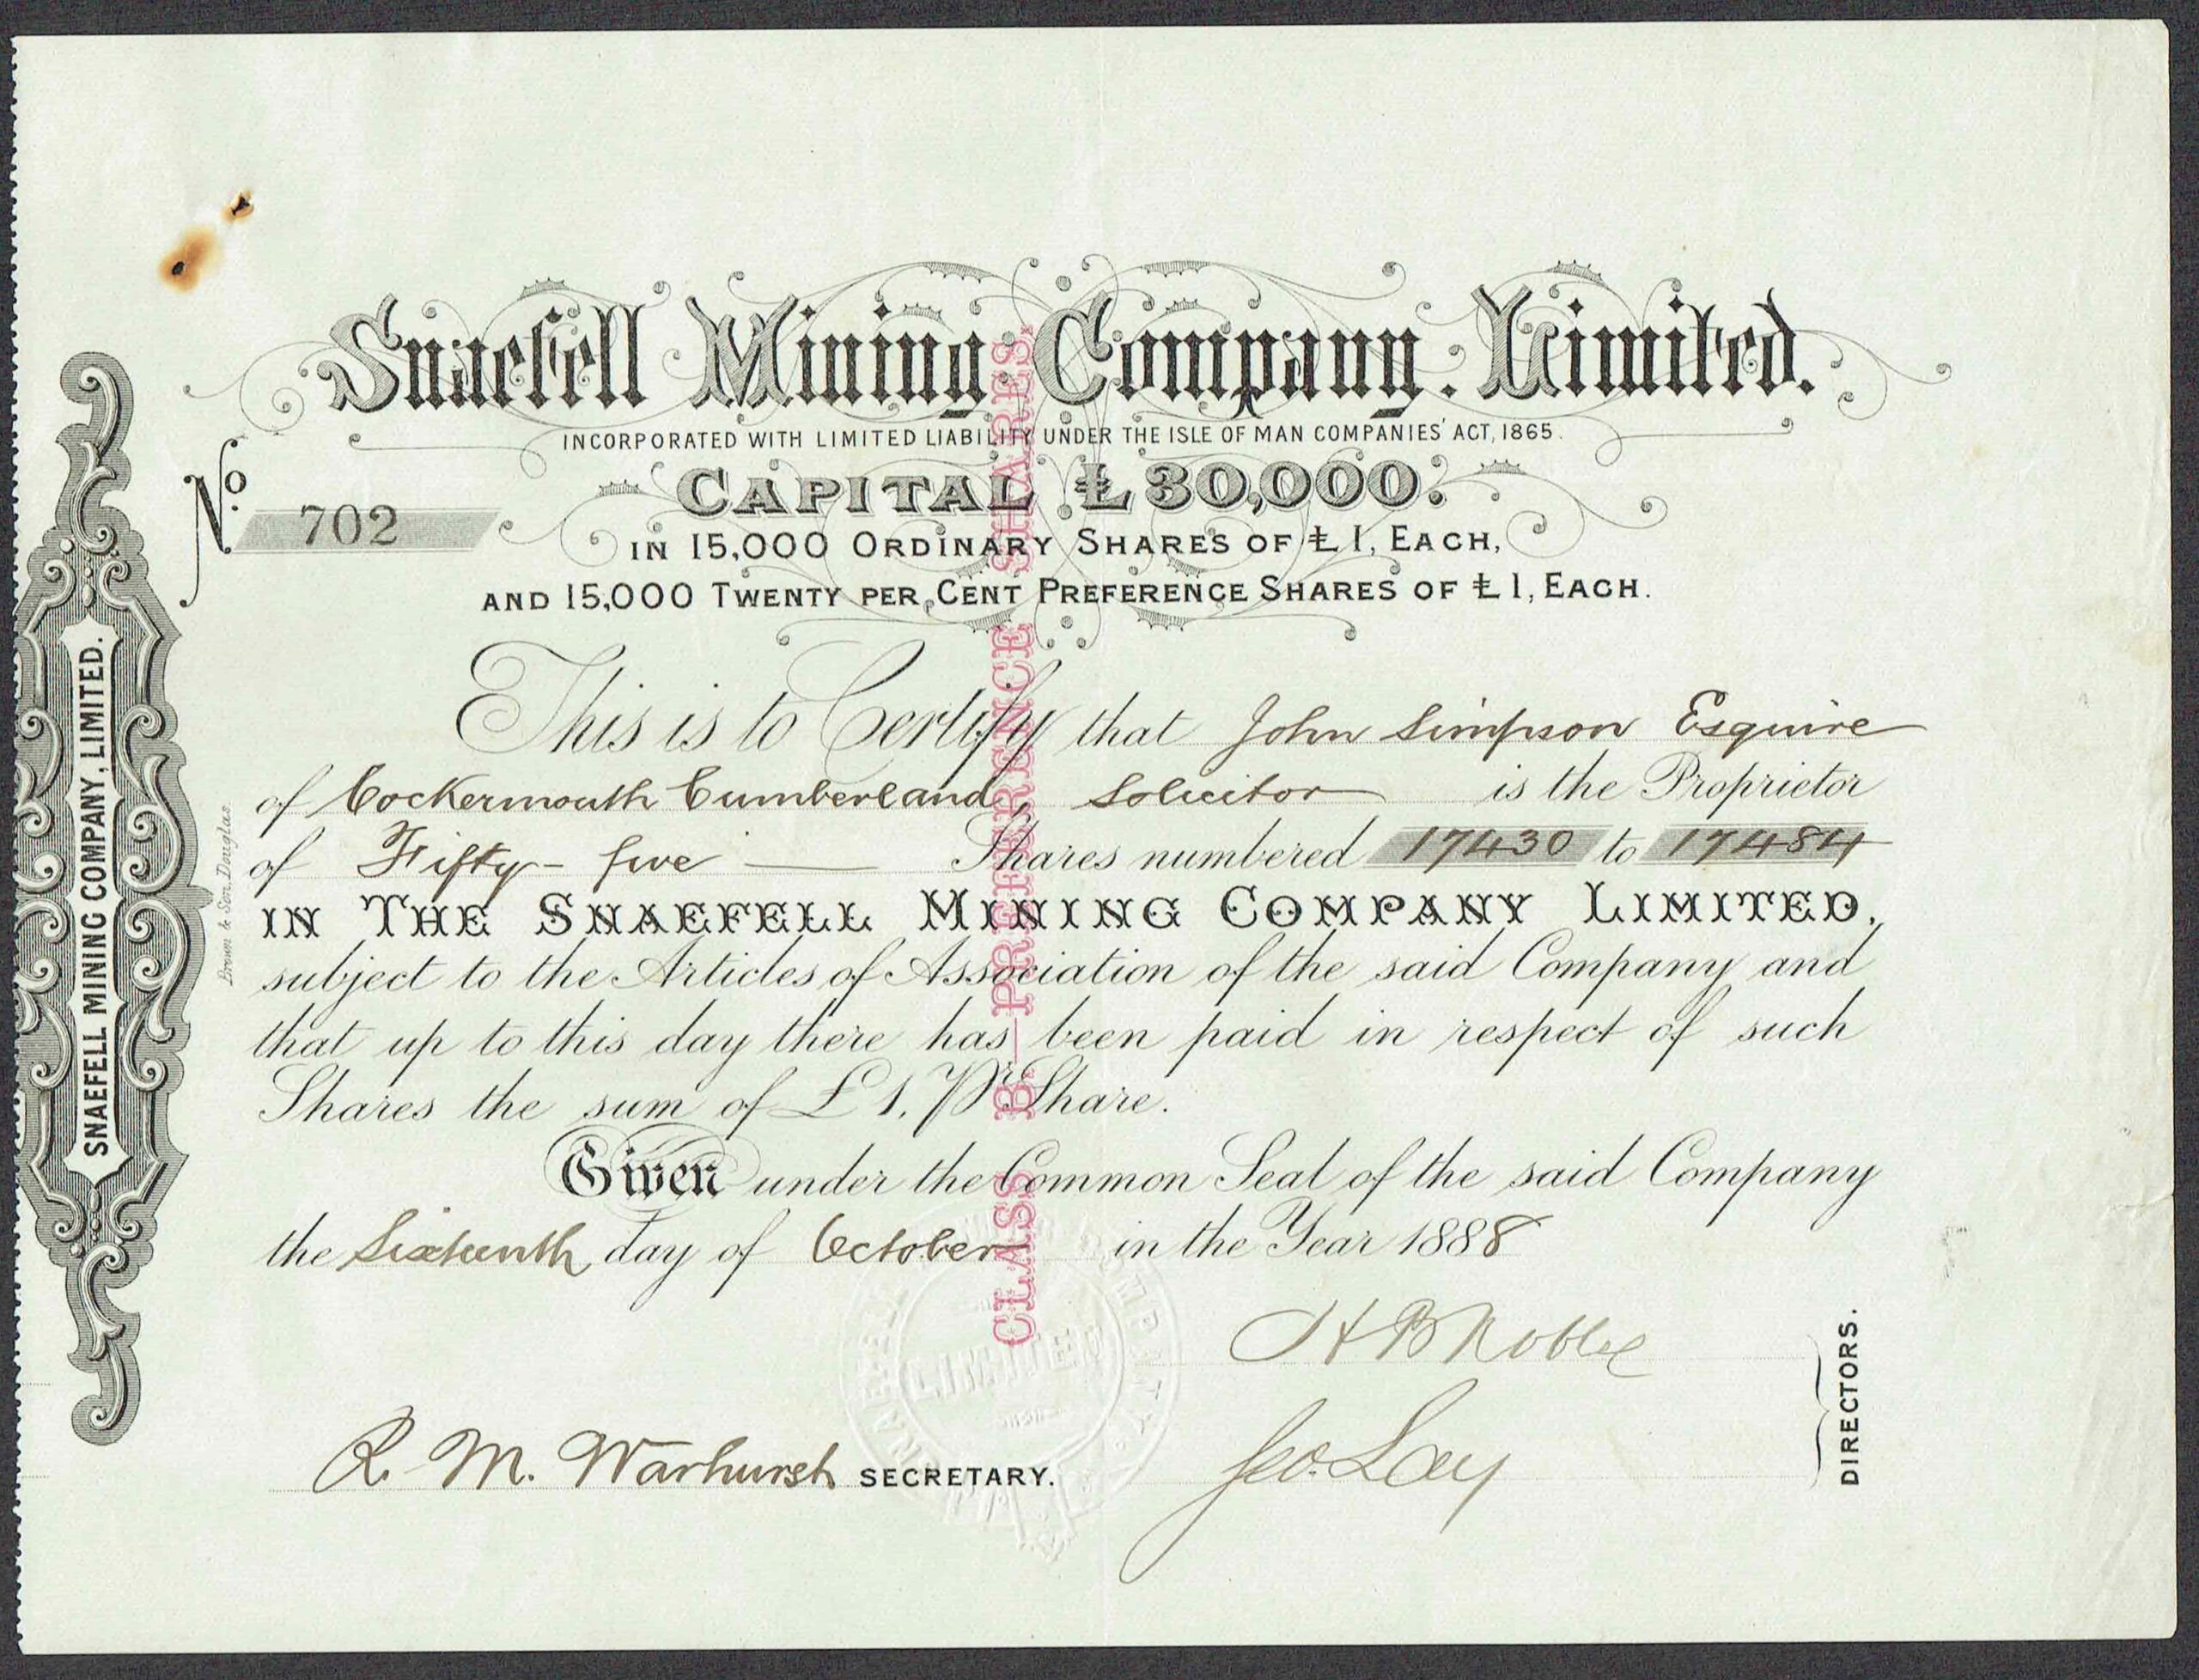 Snaefell Mining Company. Limited.
INCORPORATED WITH LIMITED LIABILITY UNDER THE ISLE OF MAN COMPANIES' ACT, 1865.
CAPITAL £30,000.
No. 702
IN 15,000 ORDINARY SHARES OF £1, EACH,
AND 15,000 TWENTY PER CENT PREFERENCE SHARES OF £1, EACH.
This is to Certify that John Simpson Esquire
of Cockermouth Cumberland, Solicitor is the Proprietor
of Fifty-five Shares numbered 17430 to 17484
IN THE SNAEFELL MINING COMPANY LIMITED,
subject to the Articles of Association of the said Company and
that up to this day there has been paid in respect of such
Shares the sum of £1. Pr Share.
Given under the Common Seal of the said Company
the Sixteenth day of October in the Year 1888
H B Noble
Geo. Lay
DIRECTORS.
R. M. Warhurst SECRETARY.
CLASS B. PREFERENCE SHARES.
SNAEFELL MINING COMPANY, LIMITED.
Brown & Son, Douglas
LIMITED